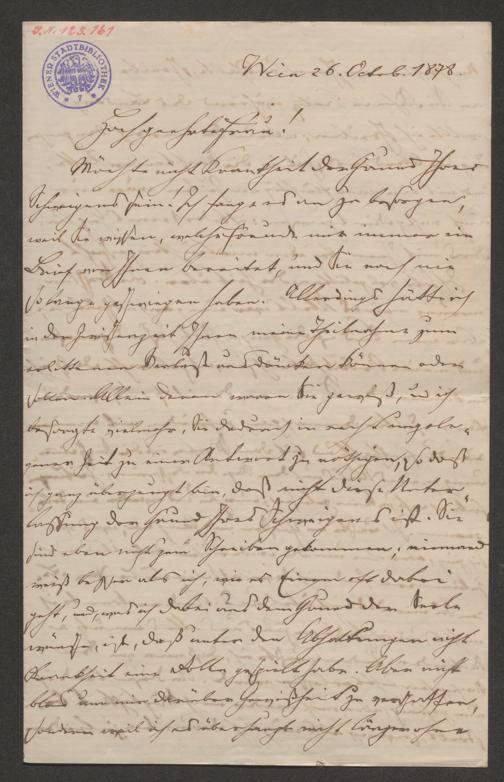 J.N. 123.161
WIENER STADTBIBLIOTHEK
Wien 26. Octob. 1878.
Hochgeehrte Frau!
Möchte nicht Krankheit der Grund Ihres
Schweigens sein! Ich fange es an zu besorgen,
weil Sie wissen, welche Freude mir immer ein
Brief von Ihnen bereitet, und Sie noch nie
so lange geschwiegen haben. Allerdings hätte ich
in der Zwischenzeit Ihnen meine Theilnahme zum
erlittenen Verlust ausdrücken können oder
sollen. Allein deren waren Sie gewiß, und ich
besorgte vielmehr, Sie dadurch in recht ungele-
gener Zeit zu einer Antwort zu nöthigen, so daß
ich ganz überzeugt bin, daß nicht diese Unter-
lassung der Grund Ihres Schweigens ist. Sie
sind eben nicht zum Schreiben gekommen; niemand
weiß besser als ich, wie es Einem oft dabei
geht, und was ich dabei aus dem Grund der Seele
wünsche, ist, daß unter den Abhaltungen nicht
Krankheit eine Rolle gespielt habe. Aber nicht
blos um mir darüber Gewißheit zu verschaffen,
sondern weil ich es überhaupt nicht länger ohne